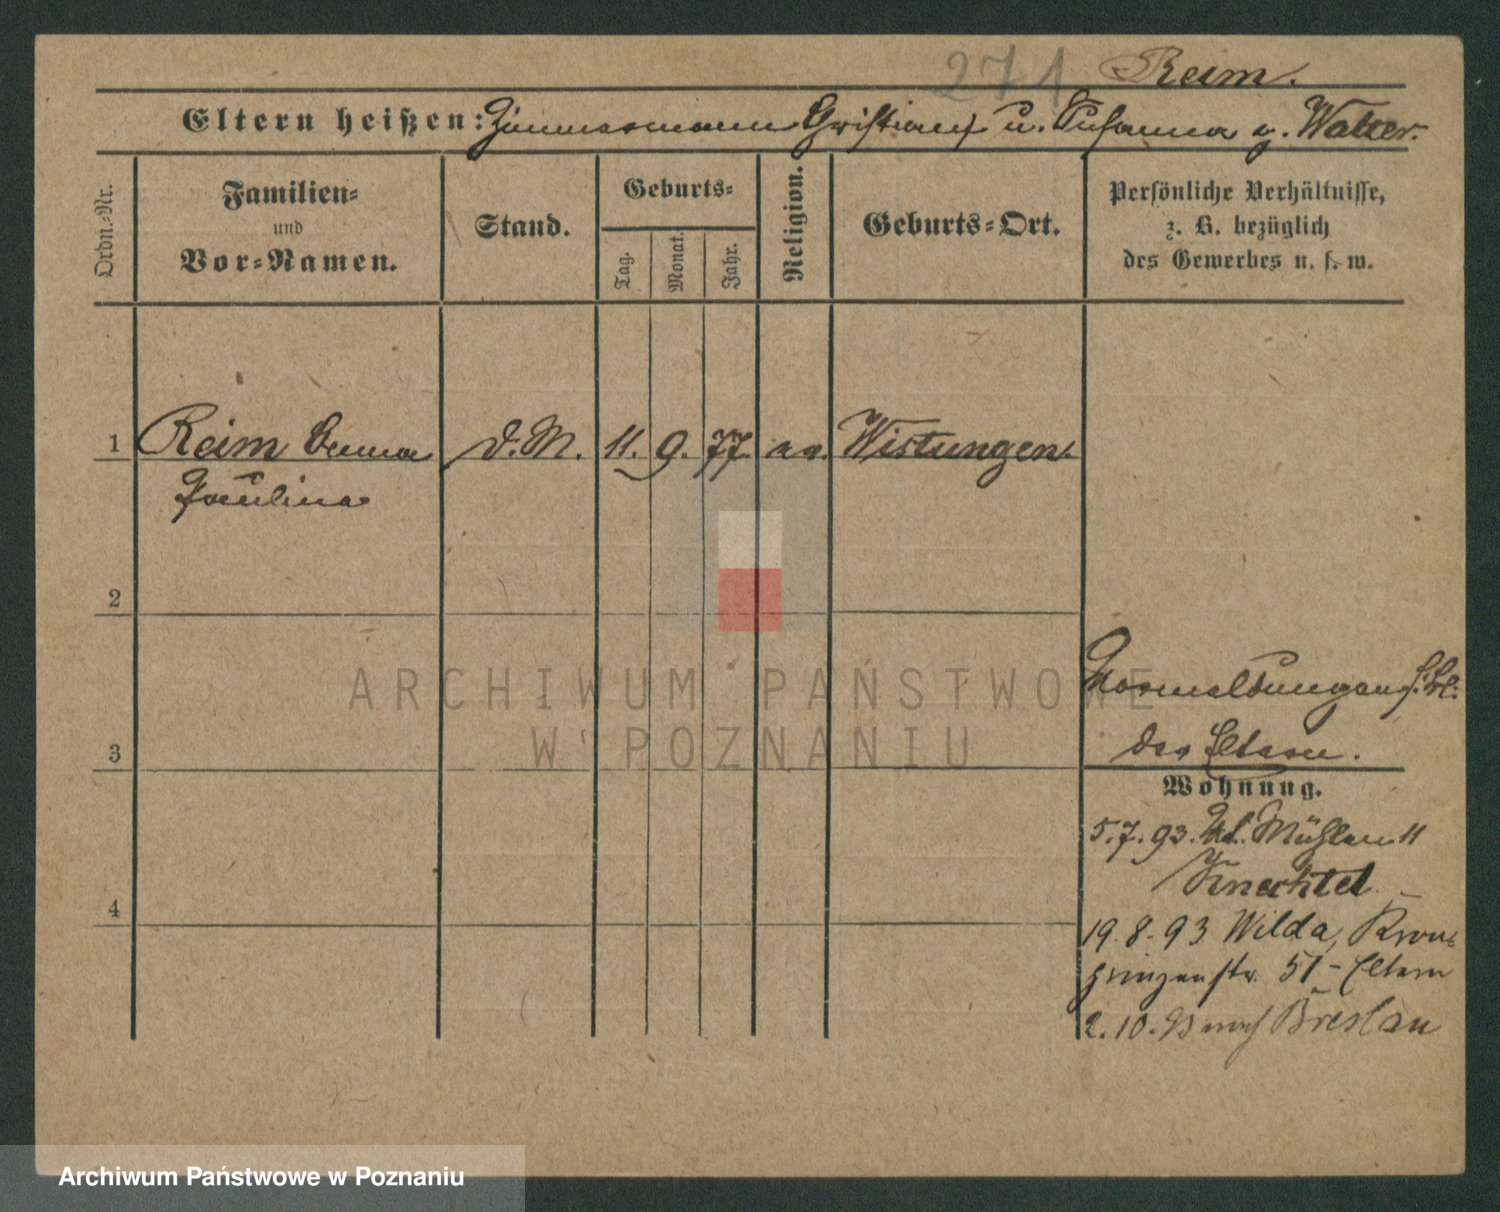 271 Reim.
Eltern heißen: Zimmermann Christian u. Susanna g. Walter.
Ordn.-Nr.
Familien-
und
Vor-Namen.
Stand.
Geburts-
Tag.
Monat.
Jahr.
Religion.
Geburts-Ort.
Persönliche Verhältnisse,
z. B. bezüglich
des Gewerbes u. s. w.
1 Reim Emma d.M. 11. 9. 77. Wistungen.
Paulina
2
3
4
der Eltern.
Wohnung.
5.7.93. Mühlen 11
Knechtel
19.8.93 Wilda, Kron-
prinzenstr. 51 - Eltern
2.10.93 nach Breslau
ARCHIWUM PAŃSTWOWE
W POZNANIU
Archiwum Państwowe w Poznaniu